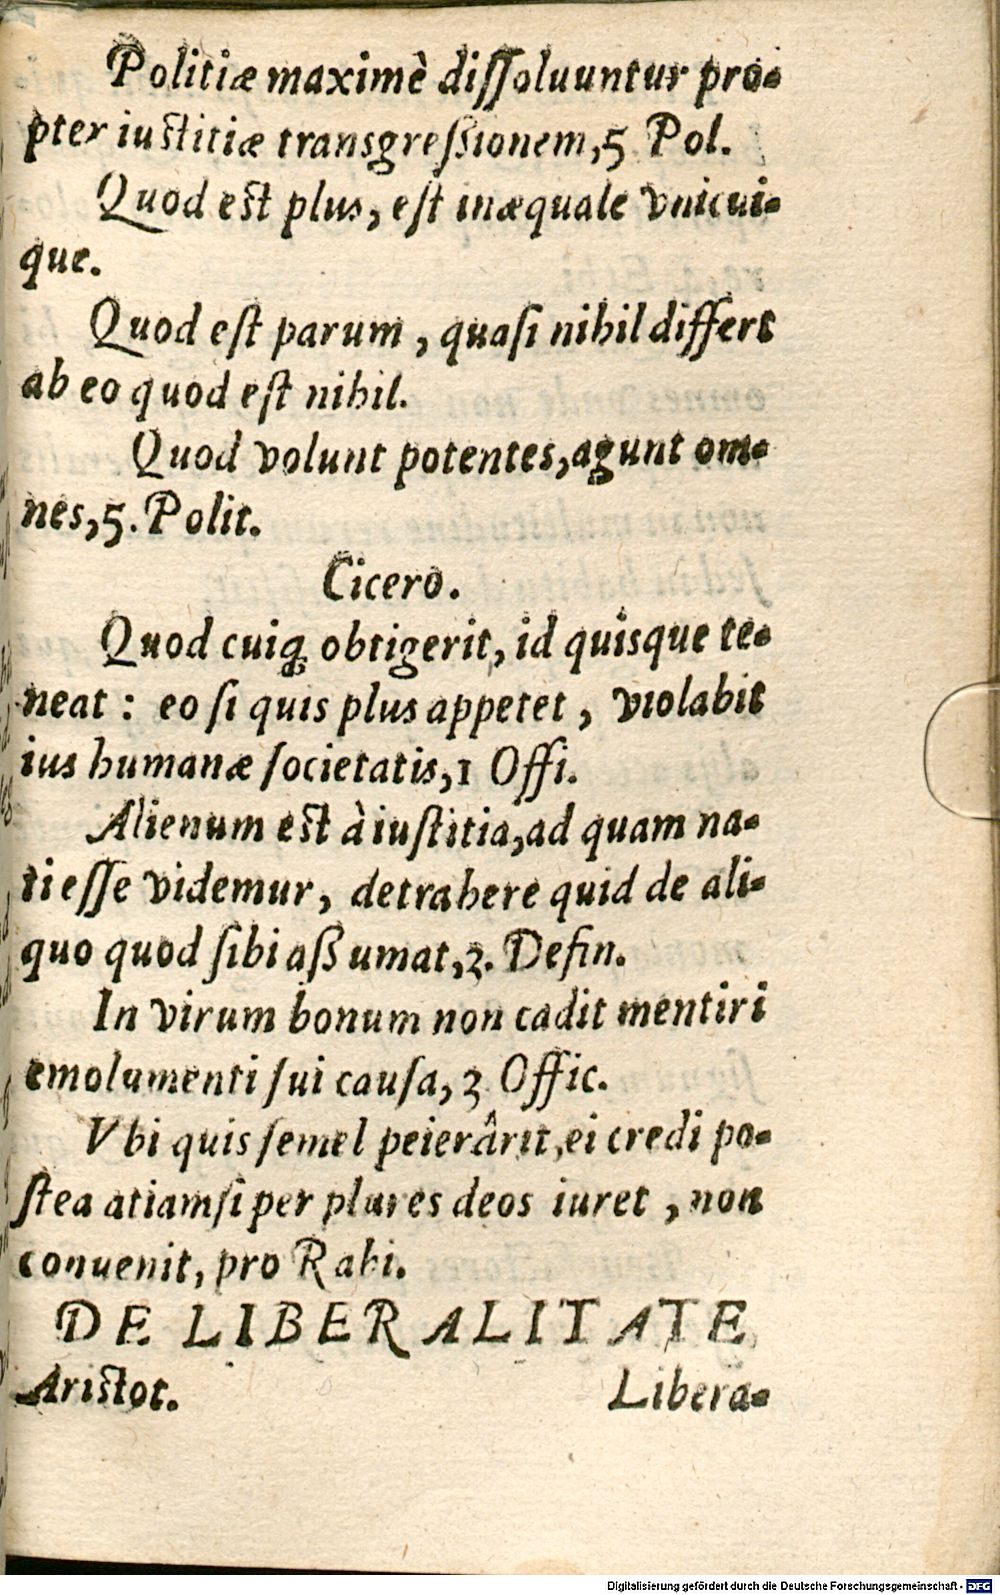 Politiæ maximè dissoluuntur pro-
pter iustitiæ transgreßionem, 5 Pol.
Quod est plus, est inæquale vnicui-
que.
Quod est parum, quasi nihil differt
ab eo quod est nihil.
Quod volunt potentes, agunt om-
nes, 5. Polit.
Cicero.
Quod cuiqꝫ obtigerit, id quisque te-
neat: eo si quis plus appetet, violabit
ius humanæ societatis, 1 Offi.
Alienum est à iustitia, ad quam na-
ti esse videmur, detrahere quid de ali-
quo quod sibi aßumat, 2. Defin.
In virum bonum non cadit mentiri
emolumenti sui causa, 3 Offic.
Vbi quis semel peierârit, ei credi po-
stea atiamsi per plures deos iuret, non
conuenit, pro Rabi.
DE LIBERALITATE
Aristot. Libera-
Digitalisierung gefördert durch die Deutsche Forschungsgemeinschaft - DFG